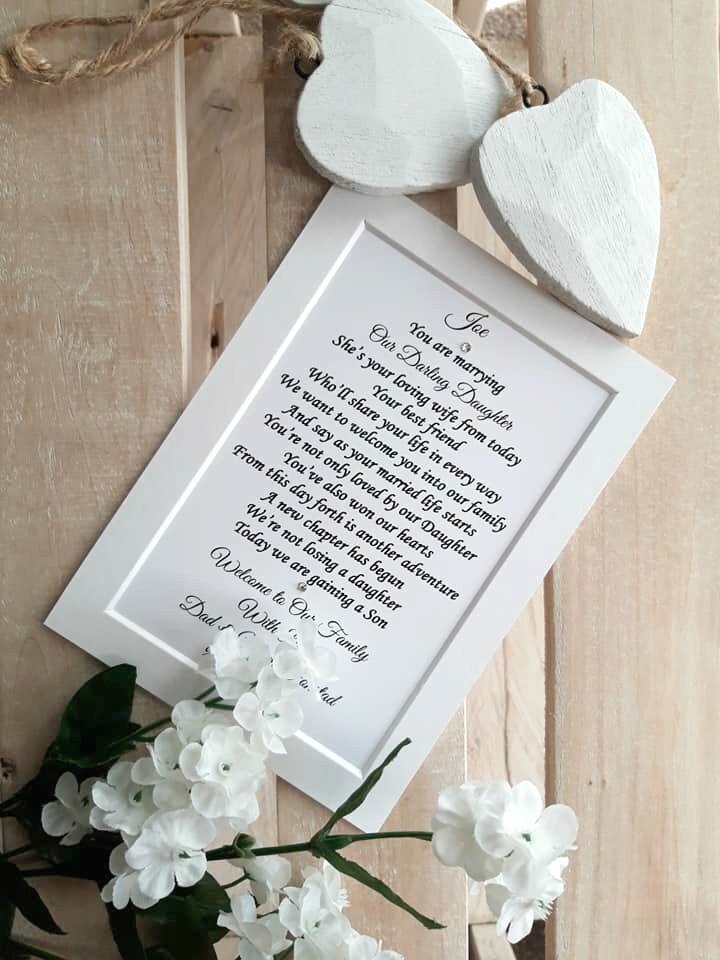 Joe
You are marrying
Our Darling Daughter
She's your loving wife from today
Your best friend
Who'll share your life in every way
We want to welcome you into our family
And say as your married life starts
You're not only loved by our Daughter
You've also won our hearts
From this day forth is another adventure
A new chapter has begun
We're not losing a daughter
Today we are gaining a Son
Welcome to Our Family
With
Dad